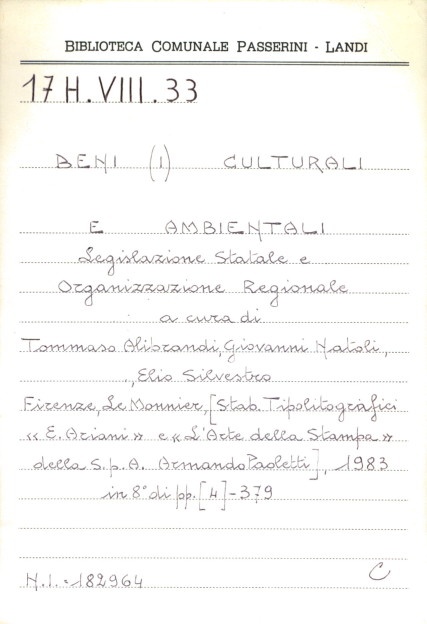 BIBLIOTECA COMUNALE PASSERINI - LANDI
17 H. VIII. 33
BENI (I) CULTURALI
E AMBIENTALI
Legislazione Statale e
Organizzazione Regionale
a cura di
Tommaso Alibrandi, Giovanni Natoli,
Elio Silvestro
Firenze, Le Monnier, [Stab. Tipolitografici
«E. Ariani» e «L'Arte della Stampa»
della S.p.A. Armando Paoletti], 1983
in 8° di pp. [4]-379
N.I.: 182964
C